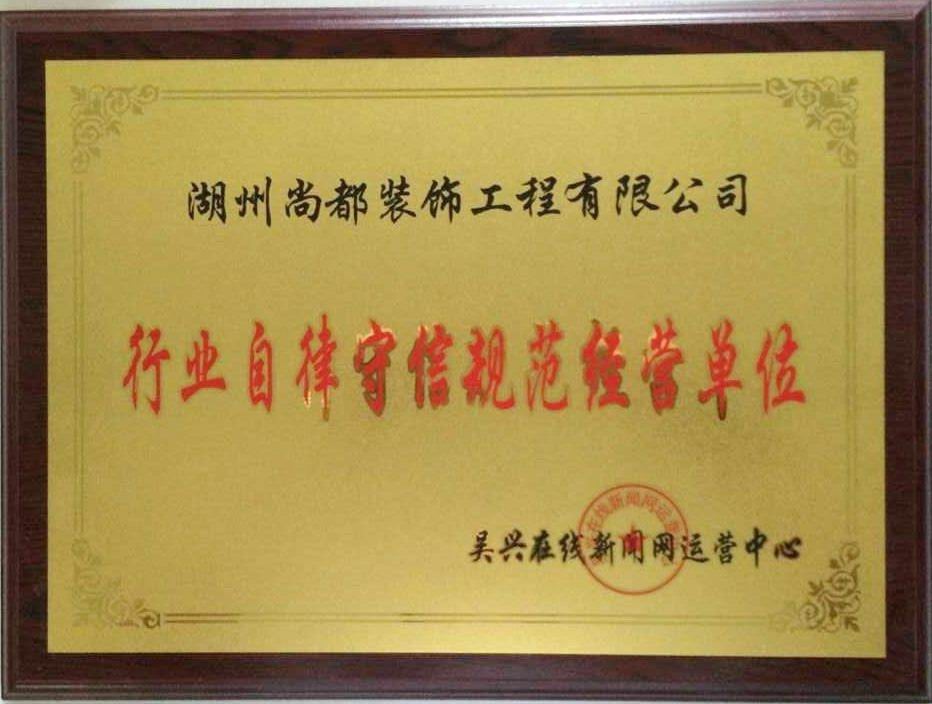 湖州尚都装饰工程有限公司
行业自律守信规范经营单位
吴兴在线新闻网运营中心